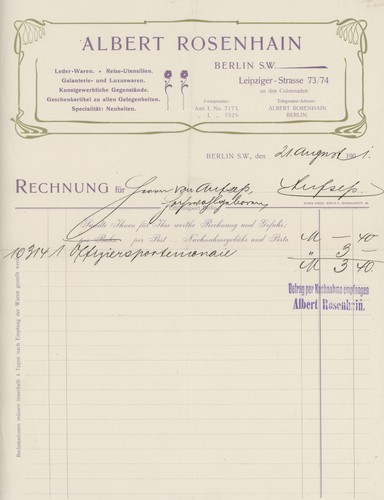 ALBERT ROSENHAIN
BERLIN S.W.
Leipziger-Strasse 73/74
an den Colonnaden.
Leder-Waren. • Reise-Utensilien.
Galanterie- und Luxuswaren.
Kunstgewerbliche Gegenstände.
Geschenkartikel zu allen Gelegenheiten.
Specialität: Neuheiten.
Fernsprecher:
Amt I. No. 7173.
" I. " 7925.
Telegramm-Adresse:
ALBERT ROSENHAIN
BERLIN.
BERLIN S.W., den 21. August 1901.
RECHNUNG für Herrn von Aufseß,
Hochwohlgeboren Aufseß.
Sandte Ihnen für Ihre werthe Rechnung und Gefahr:
per Bahn per Post — Nachnahmegebühr und Porto M — 40
10314 1 Offiziersportemonnaie " 3 —
M 3 40
Betrag per Nachnahme empfangen
Albert Rosenhain.
Reclamationen müssen innerhalb 4 Tagen nach Empfang der Waren gestellt werden.